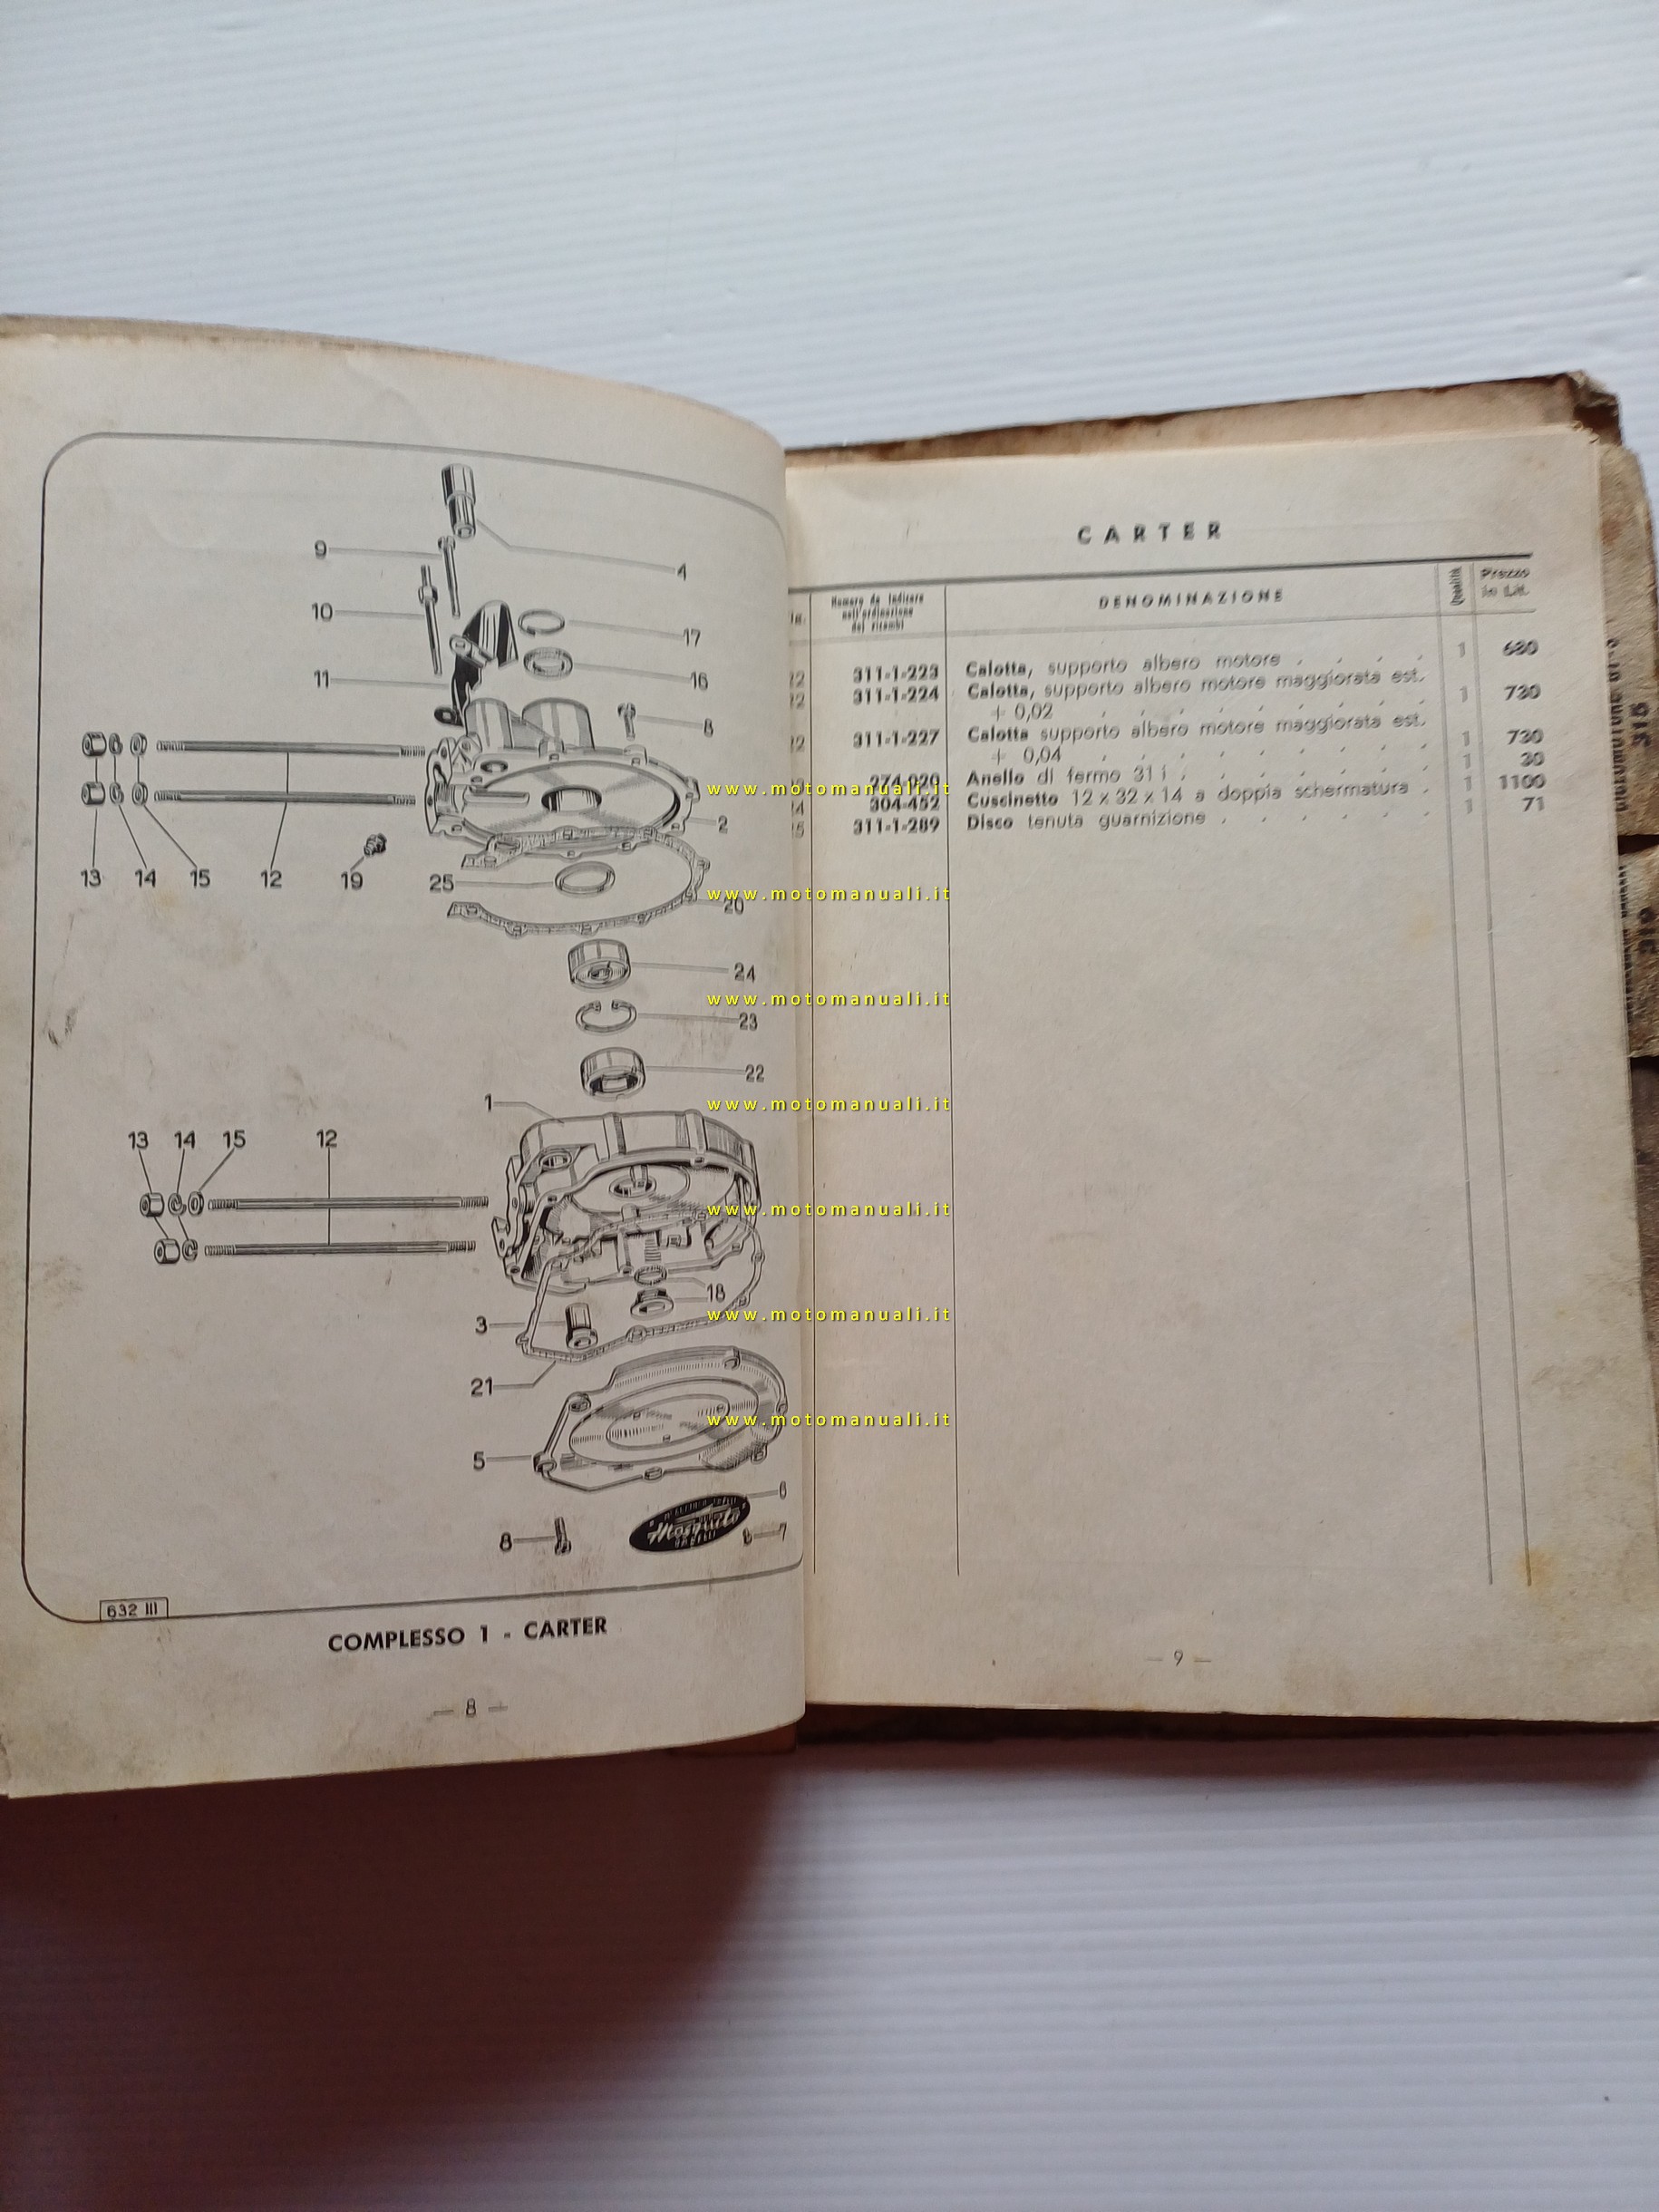 9
4
10
17
11
16
8
2
13
14
15
12
19
25
20
24
23
22
1
13
14
15
12
18
3
21
5
6
Mosquito
8
8 - 7
632 III
COMPLESSO 1 - CARTER
— 8 —
CARTER
Numero da indicare
nell'ordinazione
dei ricambi
DENOMINAZIONE
Quantità
Prezzo
in Lit.
22 311-1-223 Calotta, supporto albero motore . . . . 1 680
22 311-1-224 Calotta, supporto albero motore maggiorata est.
+ 0,02 . . . . . . . . 1 730
22 311-1-227 Calotta supporto albero motore maggiorata est.
+ 0,04 . . . . . . . . 1 730
274-020 Anello di fermo 31 i . . . . . . 1 30
24 304-452 Cuscinetto 12 x 32 x 14 a doppia schermatura . 1 1100
25 311-1-289 Disco tenuta guarnizione . . . . . . 1 71
— 9 —
315
316
www.motomanuali.it
www.motomanuali.it
www.motomanuali.it
www.motomanuali.it
www.motomanuali.it
www.motomanuali.it
www.motomanuali.it